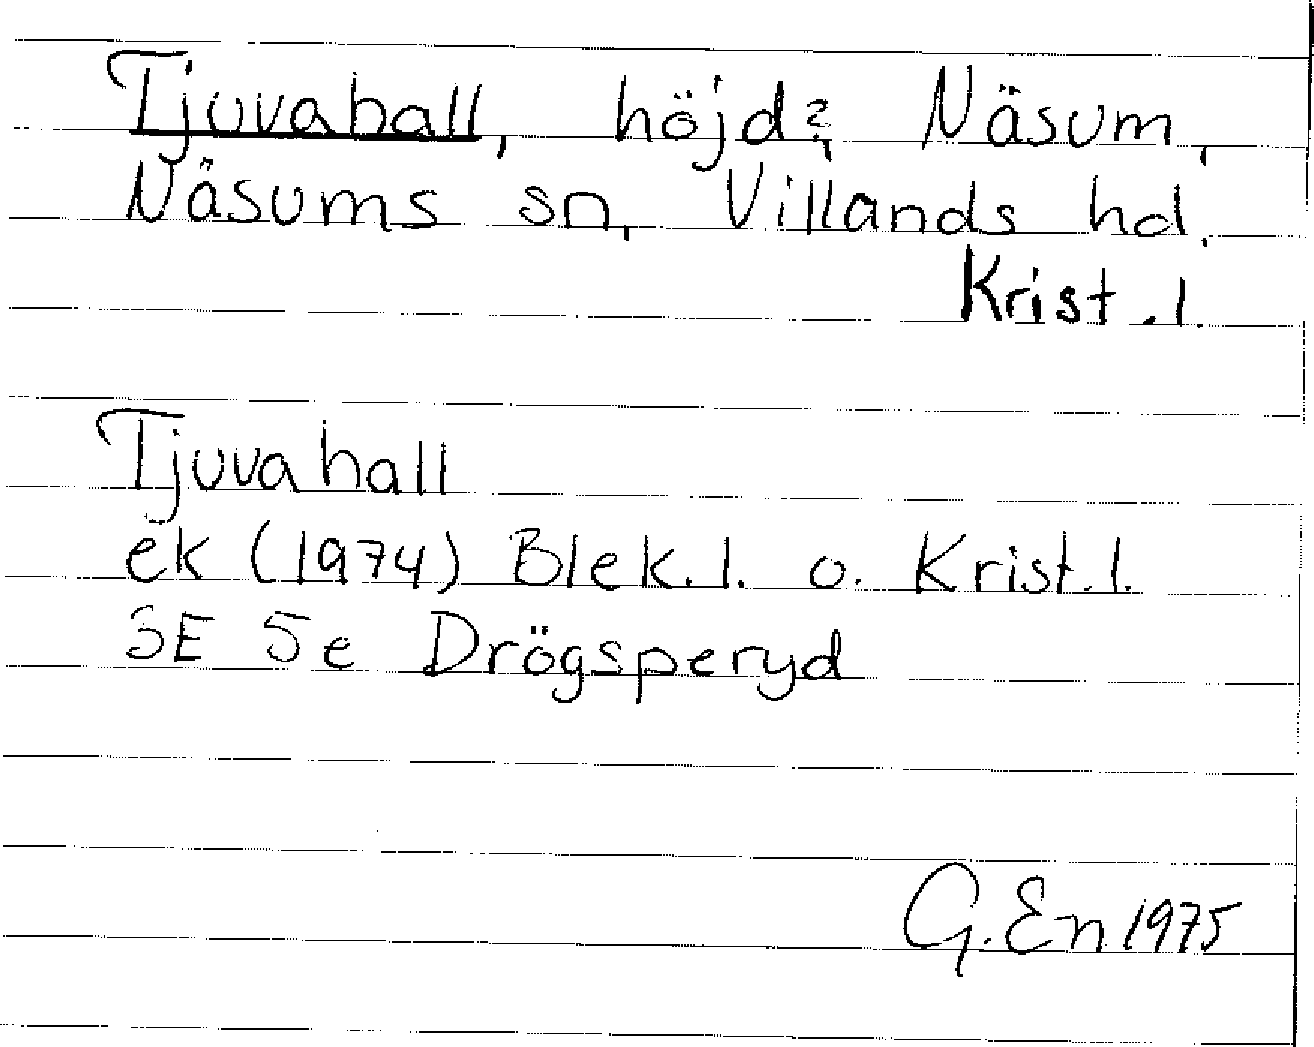 Tjuvahall, höjd?, Näsum,
Näsums sn, Villands hd,
Krist. l.
Tjuvahall
ek (1974) Blek. l. o. Krist. l.
3E 5e Drögsperyd
G. En 1975